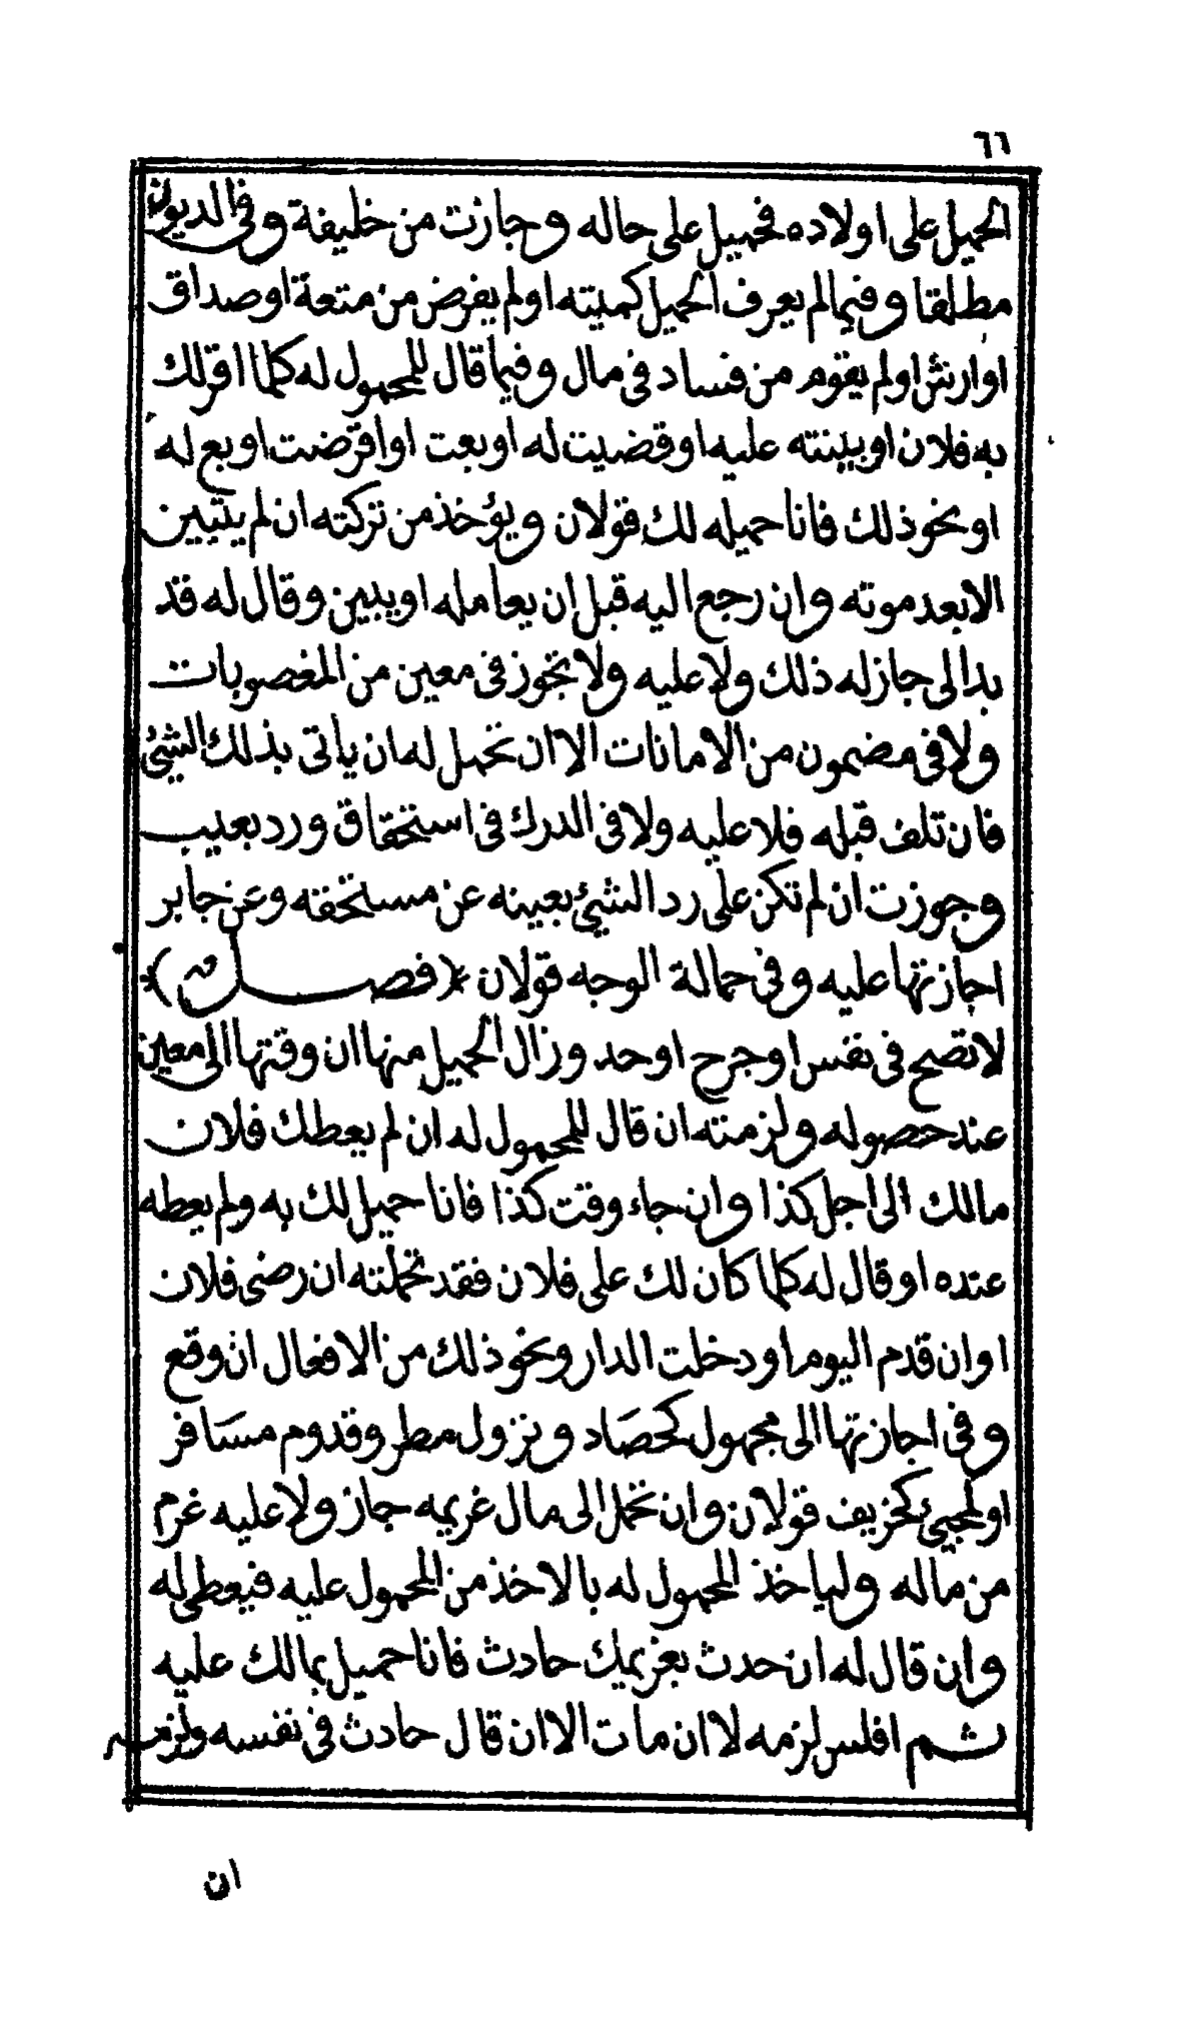 ٦٦
الحميل على اولاده فحميل على حاله وجازت من خليفة وفى الديوان
مطلقا وفيما لم يعرف الحميل كميته اولم يفرض من متعة اوصداق
اوارش اولم يقوم من فساد فى مال وفيما قال للمحمول له كلما اقر لك
به فلان اوبينته عليه اوقضيت له اوبعت اواقرضت اوبع له
اونحوذلك فانا حميله لك قولان ويؤخذ من تركته ان لم يتبين
الابعد موته وان رجع اليه قبل ان يعامله اويبين وقال له قد
بدالى جازله ذلك ولا عليه ولا تجوز فى معين من المغصوبات
ولا فى مضمون من الامانات الا ان تحمل له ان ياتى بذلك الشئ
فان تلف قبله فلا عليه ولا فى الدرك فى استحقاق ورد بعيب
وجوزت ان لم تكن على رد الشئ بعينه عن مستحقه وعن جابر
اجازتها عليه وفى حمالة الوجه قولان (فصل)
لا تصح فى نفس اوجرح اوحد وزال الحميل منها ان وقتها الى معين
عند حصوله ولزمته ان قال للمحمول له ان لم يعطك فلان
مالك الى اجل كذا وان جاء وقت كذا فانا حميل لك به ولم يعطه
عنده اوقال له كلما كان لك على فلان فقد تحملته ان رضى فلان
اوان قدم اليوم اودخلت الدار ونحوذلك من الافعال ان وقع
وفى اجازتها الى مجهول كحصاد ونزول مطر وقدوم مسافر
اولمجئ كخريف قولان وان تحمل الى مال غريمه جاز ولا عليه غرم
من ماله ولياخذ المحمول له بالاخذ من المحمول عليه فيعطى له
وان قال له ان حدث بغريمك حادث فانا حميل بمالك عليه
ثم افلس لزمه لا ان مات الا ان قال حادث فى نفسه ولزمه
ان